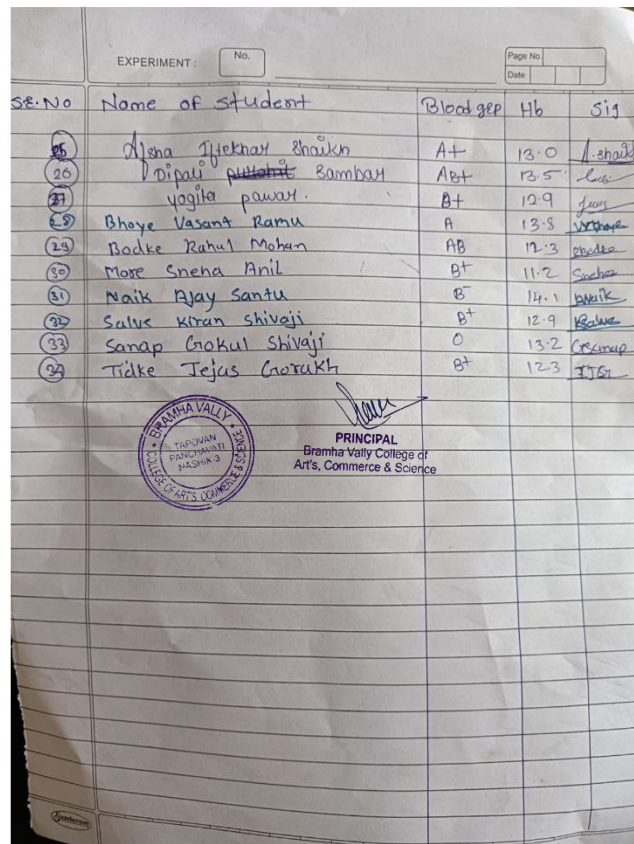 EXPERIMENT : No.
Page No.
Date
SE.NO Name of student Blood gep Hb Sig
25 Aisha Iftekhar Shaikh A+ 13.0 A.shaikh
26 Dipali Sambar AB+ 13.5
27 yogita pawar. B+ 12.9
28 Bhoye Vasant Ramu A 13.8
29 Bodke Rahul Mohan AB 12.3 Rbodke
30 More Sneha Anil B+ 11.2 Sneha
31 Naik Ajay Santu B- 14.1
32 Salve Kiran Shivaji B+ 12.9 KSalve
33 Sanap Gokul Shivaji O 13.2 Gsanap
34 Tidke Tejus Gorukh B+ 12.3
BRAMHA VALLY
COLLEGE OF ARTS, COMMERCE & SCIENCE
TAPOVAN
PANCHAVATI
NASHIK-3
PRINCIPAL
Bramha Vally College of
Art's, Commerce & Science
Sundaram